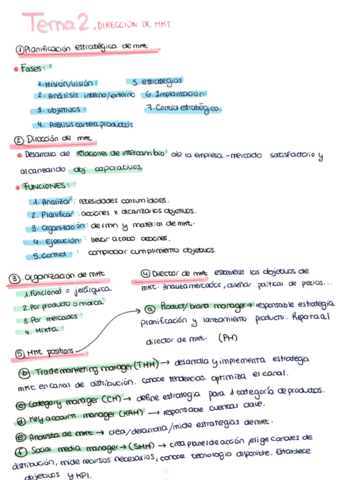 Tema 2. DIRECCIÓN DE MKT
① Planificación estratégica de mkt
• Fases:
1. Misión/visión
5. estrategias
2. Análisis interno/externo
6. Implantación
3. objetivos
7. Control estratégico
4. Análisis cartera productos
② Dirección de mkt
• Desarrollo de relaciones de intercambio de la empresa-mercado satisfactorio y
alcanzando obj. corporativos
• FUNCIONES:
1. Analizar: necesidades consumidores.
2. Planificar: acciones x alcanzar los objetivos.
3. Organización: de rrhh y material de mkt.
4. Ejecución: llevar a cabo acciones.
5. Control: comprobar cumplimiento objetivos.
③ Organización de mkt
1. Funcional = jerárquica
2. Por producto o marca
3. Por mercados
4. Mixta.
④ Director de mkt establece los objetivos de
mkt. Analiza mercados, diseñar políticas de precios...
ⓐ Product/brand manager → responsable estrategia
planificación y lanzamiento producto. Repora al
director de mkt. (PM)
⑤ Mkt positions
ⓑ Trade marketing manager (TMM) → desarrolla y implementa estrategia
mkt en canal de distribución. conoce tendencias. optimiza el canal.
ⓒ Category manager (CM) → define estrategia para 1 categoría de productos.
ⓓ Key account manager (KAM) → responsable cuentas clave.
ⓔ Analista de mkt → crea/desarrolla/mide estrategias de mkt.
ⓕ Social media manager → (SMM) → crea planes de acción, elige canales de
distribución, mide recursos necesarios, conoce tecnología disponible. Establece
objetivos y KPI.